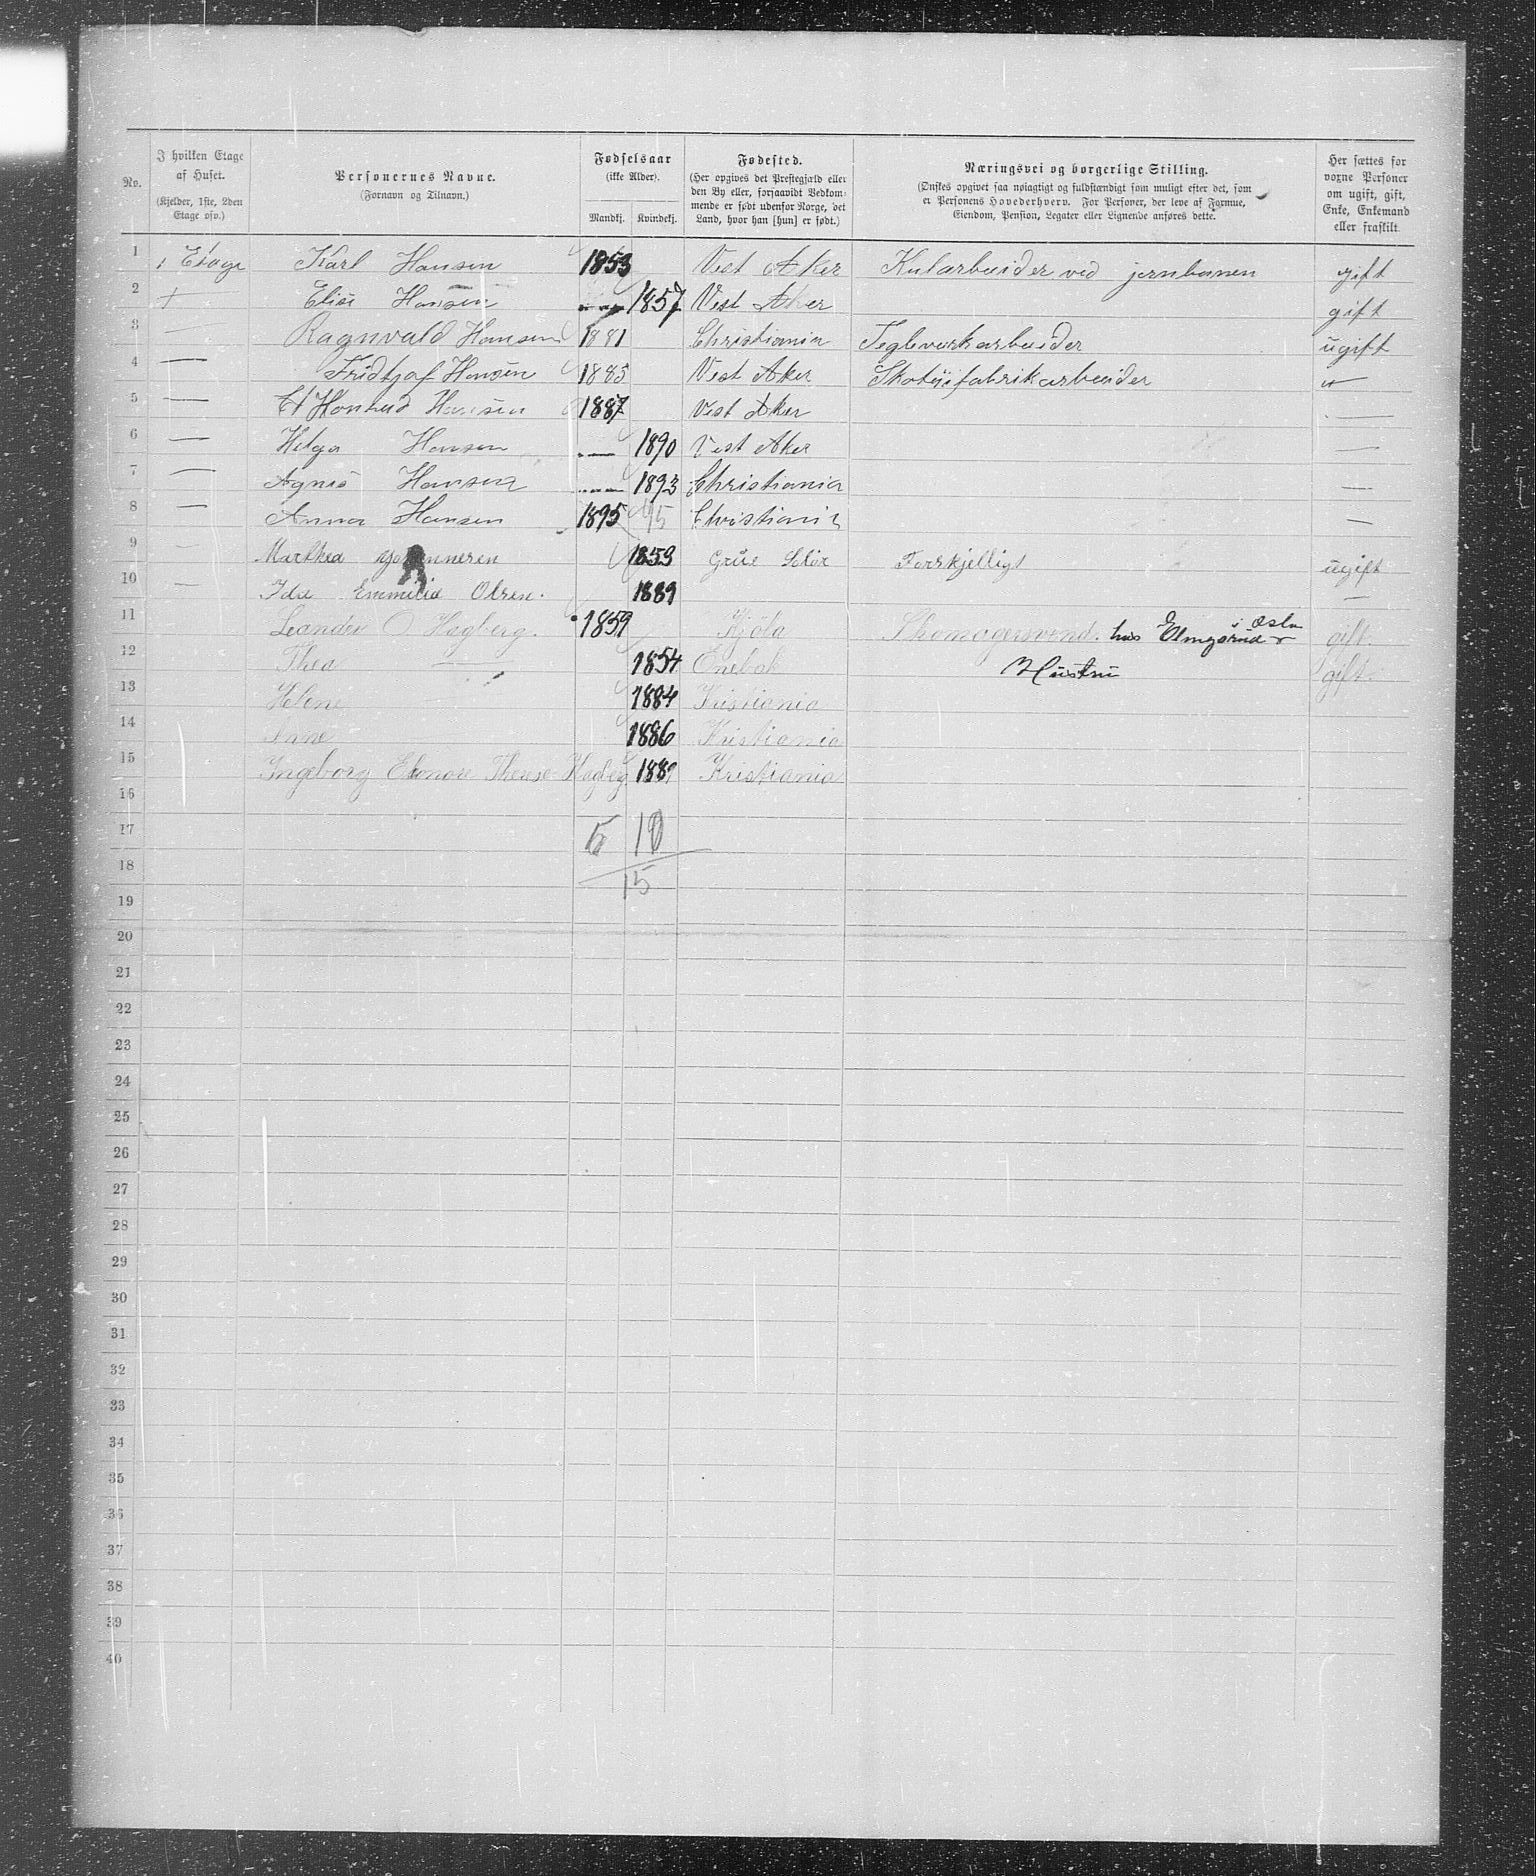 No. | I hvilken Etage af Huset. (Kjelder, 1ste, 2den Etage osv.) | Personernes Navne. (Fornavn og Tilnavn.) | Fødselsaar (ikke Alder). Mandkj. | Kvindekj. | Fødested. (Her opgives det Prestegjæld eller den By eller, forsaavidt Vedkommende er født udenfor Norge, det Land, hvor han [hun] er født.) | Næringsvei og borgerlige Stilling. (Ønskes opgivet saa nøiagtigt og fuldstændigt som muligt efter det, som er Personens Hovederhverv. For Personer, der leve af Formue, Eiendom, Pension, Legater eller Lignende anføres dette. | Her sættes for voxne Personer om ugift, gift, Enke, Enkemand eller fraskilt.
1 | 1 Etage | Karl Hansen | 1853 | | Vest Aker | Kularbeider ved jernbanen | gift
2 | | Elise Hansen | | 1857 | Vest Aker | | gift
3 | — | Ragnvald Hansen | 1881 | | Christiania | Teglverkarbeider | ugift
4 | — | Fridtjof Hansen | 1885 | | Vest Aker | Skotøifabrikarbeider | "
5 | — | Hansen | 1887 | | Vest Aker | | —
6 | — | Helga Hansen | — | 1890 | Vest Aker | | —
7 | — | Agnes Hansen | — | 1893 | Christiania | | —
8 | — | Anna Hansen | 1895 | 95 | Christiania | | —
9 | — | Marthea | | 1853 | Grue Solør | Forskjelligt | ugift
10 | — | Ida Emmilia Olsen. | | 1889 | | | —
11 | | Leander O Hagberg. | 1859 | | | Skomagersvend. hos Elmgsrud i Oslo | gift.
12 | | Thea — | | 1854 | Enebak | Hustru | gift.
13 | | Helene | | 1884 | Kristiania
14 | | | | 1886 | Kristiania
15 | | Ingeborg Elonore Therese Hagberg | | 1889 | Kristiania
16
17 | | | 5 | 10
18 | | | 15
19
20
21
22
23
24
25
26
27
28
29
30
31
32
33
34
35
36
37
38
39
40